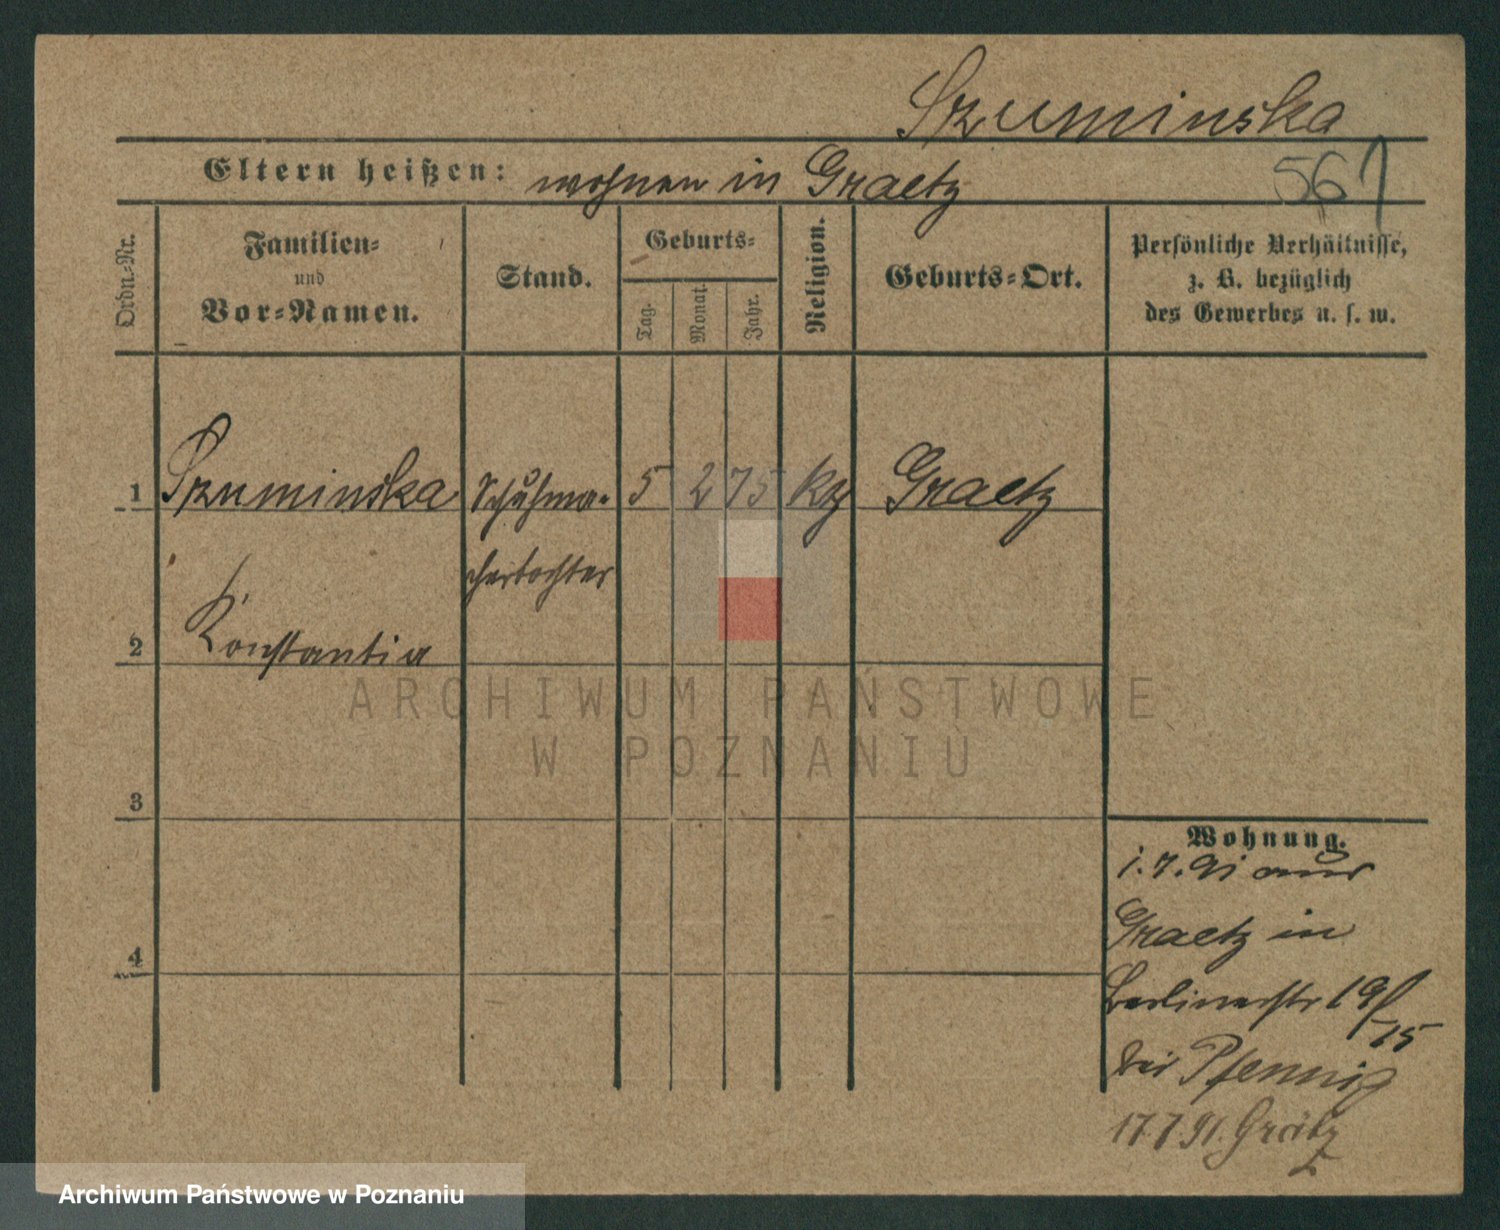 Szuminska
Eltern heißen: wohnen in Graetz
567
Ordn.-Nr.
Familien-
und
Vor-Namen.
Stand.
Geburts-
Tag.
Monat.
Jahr.
Religion.
Geburts-Ort.
Persönliche Verhältnisse,
z. B. bezüglich
des Gewerbes u. s. w.
1 Szuminska Schuhma- 5 2 75 Graetz
chertochter
2 Konstantia
3
4
Wohnung.
1.7.91 aus
Graetz in
Berlinerstr 19/
15
bei Pfennig
17.7.91. Grätz
ARCHIWUM PAŃSTWOWE
W POZNANIU
Archiwum Państwowe w Poznaniu